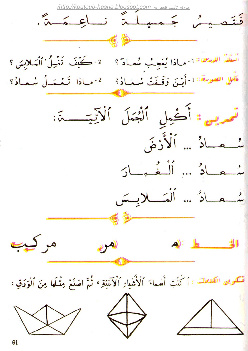 فَتَصِيرُ جَمِيلَةً نَاعِمَةً.
أسئلة الدرس: ١- مَاذَا يُعْجِبُ سُعَادَ؟ ٢- كَيْفَ تَغْسِلُ الْمَلَابِسَ؟
١- أَيْنَ وَقَفَتْ سُعَادُ؟ ٢- مَاذَا تَغْسِلُ سُعَادُ؟
تمرين: أَكْمِلِ الْجُمَلَ الْآتِيَةَ:
سُعَادُ ... الْأَرْضَ
سُعَادُ ... الْغُبَارَ
سُعَادُ ... الْمَلَابِسَ
الخط م مر مركب
اُكْتُبْ أَسْمَاءَ الْأَشْيَاءِ الْآتِيَةِ، ثُمَّ اصْنَعْ مِثْلَهَا مِنَ الْوَرَقِ:
61